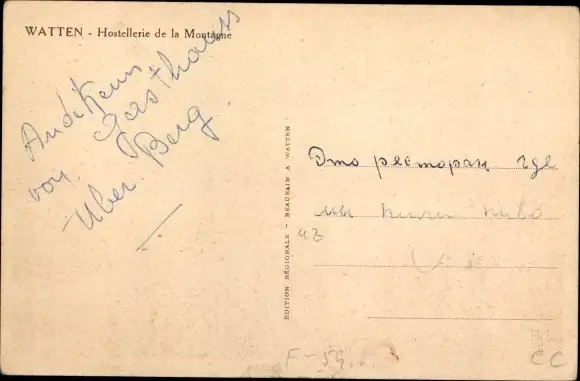 WATTEN - Hostellerie de la Montagne
Andenken
von Gasthauss
Uber Berg
EDITION RÉGIONALE - BEAURAIN A WATTEN
Это ресторан где
мы пили пиво
из
F-59
CC